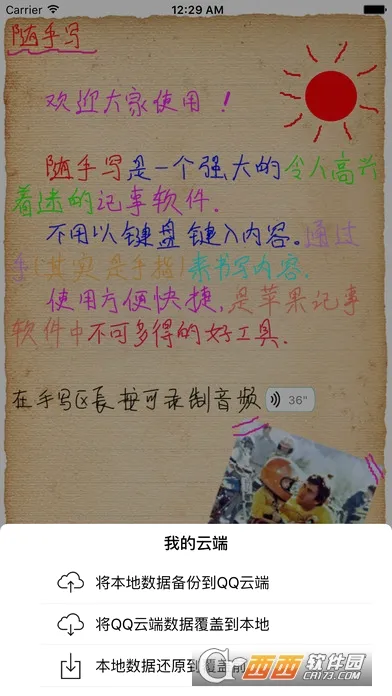 Carrier 12:29 AM
随手写
欢迎大家使用！
随手写是一个强大的令人高兴
着迷的记事软件.
不用以键盘键入内容。通过
手(其实是手指)来书写内容.
使用方便快捷,是苹果记事
软件中不可多得的好工具.
在手写区长按可录制音频 36"
我的云端
将本地数据备份到QQ云端
将QQ云端数据覆盖到本地
本地数据还原到覆盖前
西西软件园
CR173.COM